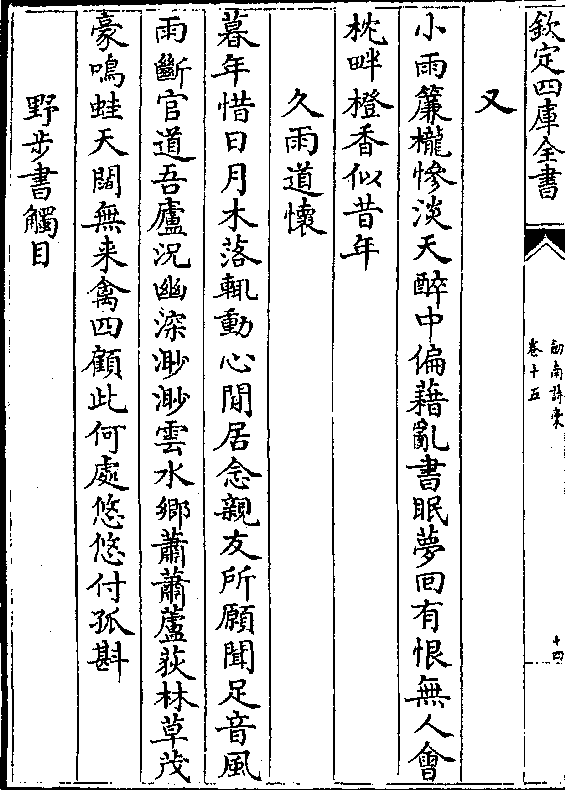 欽定四庫全書
劎南詩稾
卷十五
十四
又
小雨簾櫳慘淡天醉中偏藉亂書眠夢回有恨無人會
枕畔橙香似昔年
久雨道懷
暮年惜日月木落輒動心閒居念親友所願聞足音風
雨斷官道吾廬況幽深渺渺雲水鄉蕭蕭蘆荻林草茂
豪鳴蛙天闊無来禽四顧此何處悠悠付孤斟
野步書觸目